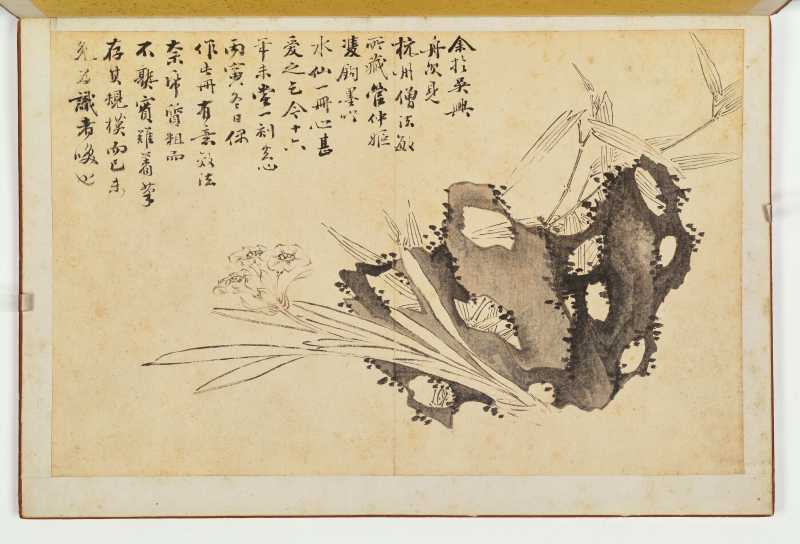 余於吳興
舟次見
杭州僧法
所藏管仲姬
雙鉤墨竹
水仙一冊心甚
愛之迄今十六
年未嘗一刻忘心
丙寅冬日
作此冊有意效法
奈質粗而
不
存其規模而已未
免為識者嗤也